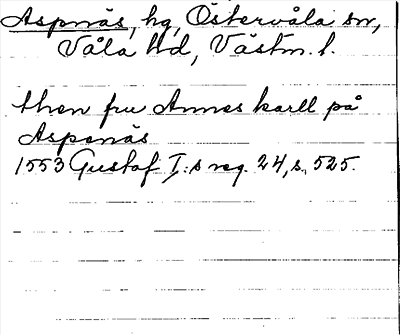 Aspnäs, hg, Östervåla sn,
Våla hd, Västm. l.
then fru Annes karll på
Aspenäs
1553 Gustaf I:s reg. 24, s. 525.